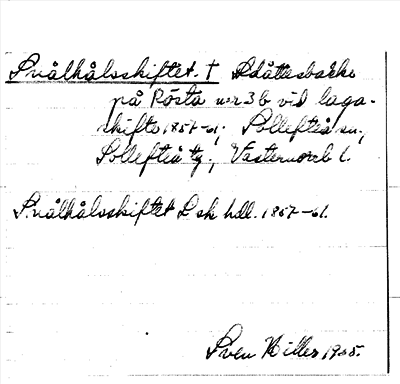 Snålhålsskiftet. † Slåttesbacke
på Rösta nr 3 b vid laga-
skifte 1857-61; Sollefteå sn.,
Sollefteå tg., Västernorrl l.
Snålhålsskiftet L sk hdl. 1857-61.
Sven Hiller 1935.